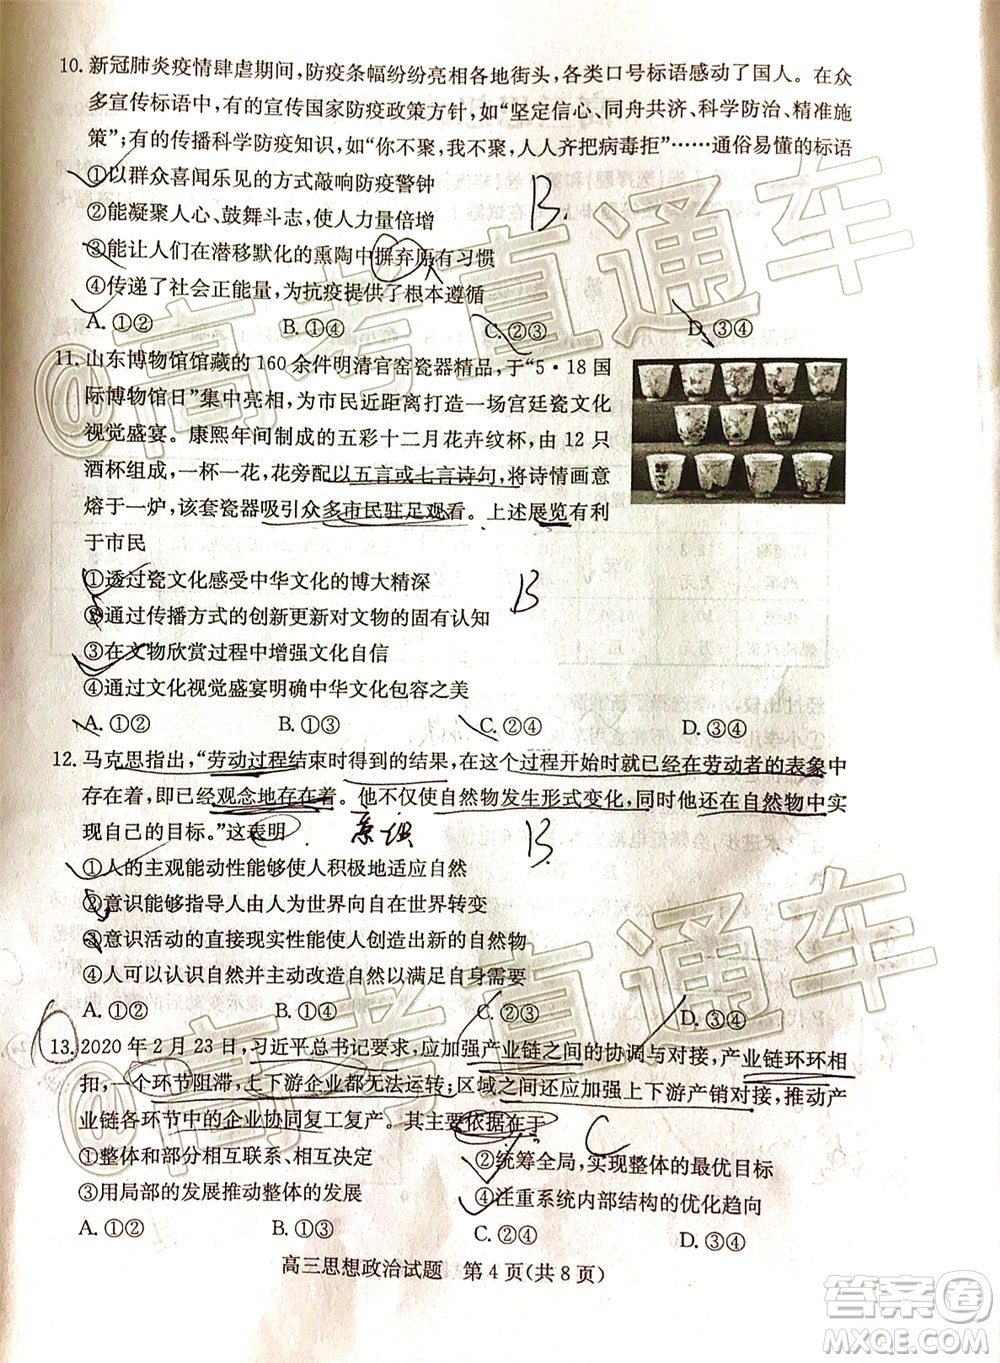 10. 新冠肺炎疫情肆虐期间，防疫条幅纷纷亮相各地街头，各类口号标语感动了国人。在众
多宣传标语中，有的宣传国家防疫政策方针，如“坚定信心、同舟共济、科学防治、精准施
策”；有的传播科学防疫知识，如“你不聚，我不聚，人人齐把病毒拒”……通俗易懂的标语
①以群众喜闻乐见的方式敲响防疫警钟
B.
②能凝聚人心、鼓舞斗志，使人力量倍增
③能让人们在潜移默化的熏陶中摒弃原有习惯
④传递了社会正能量，为抗疫提供了根本遵循
A. ①② B. ①④ C. ②③ D. ③④
11. 山东博物馆馆藏的 160 余件明清官窑瓷器精品，于“5·18 国
际博物馆日”集中亮相，为市民近距离打造一场宫廷瓷文化
视觉盛宴。康熙年间制成的五彩十二月花卉纹杯，由 12 只
酒杯组成，一杯一花，花旁配以五言或七言诗句，将诗情画意
熔于一炉，该套瓷器吸引众多市民驻足观看。上述展览有利
于市民
①透过瓷文化感受中华文化的博大精深
B
②通过传播方式的创新更新对文物的固有认知
③在文物欣赏过程中增强文化自信
④通过文化视觉盛宴明确中华文化包容之美
A. ①② B. ①③ C. ②④ D. ③④
12. 马克思指出，“劳动过程结束时得到的结果，在这个过程开始时就已经在劳动者的表象中
存在着，即已经观念地存在着。他不仅使自然物发生形式变化，同时他还在自然物中实
现自己的目标。”这表明
B.
①人的主观能动性能够使人积极地适应自然
②意识能够指导人由人为世界向自在世界转变
③意识活动的直接现实性能使人创造出新的自然物
④人可以认识自然并主动改造自然以满足自身需要
A. ①② B. ①④ C. ②③ D. ③④
13. 2020 年 2 月 23 日，习近平总书记要求，应加强产业链之间的协调与对接，产业链环环相
扣，一个环节阻滞，上下游企业都无法运转；区域之间还应加强上下游产销对接，推动产
业链各环节中的企业协同复工复产。其主要依据在于
C
①整体和部分相互联系、相互决定 ②统筹全局，实现整体的最优目标
③用局部的发展推动整体的发展 ④注重系统内部结构的优化趋向
A. ①② B. ①③ C. ②④ D. ③④
高三思想政治试题 第 4 页(共 8 页)
@高考直通车
@高考直通车
答案圈
MXQE.COM